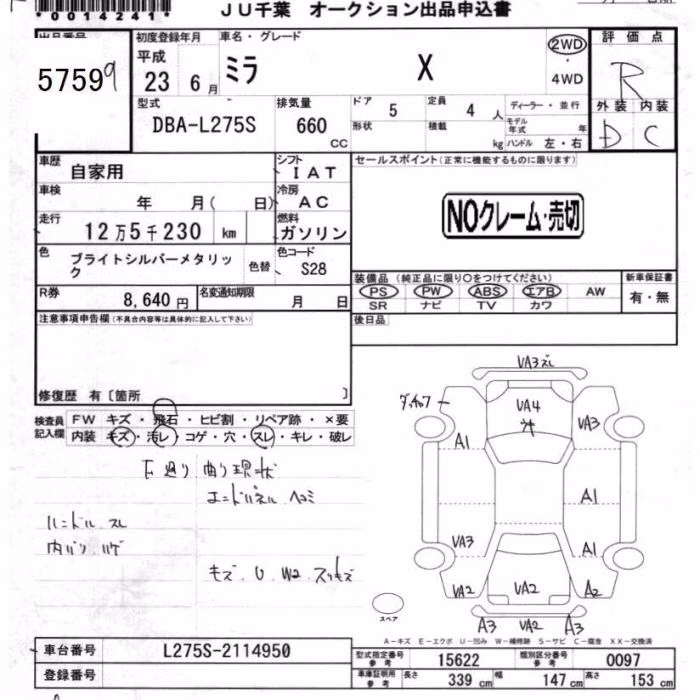 *0014241*
JU千葉 オークション出品申込書
出品番号
57599
初度登録年月
平成
23 6月
車名・グレード
ミラ X
2WD
・
4WD
評価点
R
外装 内装
D C
型式
DBA-L275S
排気量
660
CC
ドア 5
定員 4 人
形状
積載 kg
ディーラー・並行
モデル年式 年
ハンドル 左・右
車歴
自家用
シフト
IAT
車検
年 月( 日)
冷房
AC
走行
12万5千230 km
燃料
ガソリン
色
ブライトシルバーメタリック
色替
色コード
S28
R券
8,640円
名変通知期限
月 日
セールスポイント(正常に機能するものに限ります)
NOクレーム・売切
装備品(純正品に限り○をつけてください)
PS PW ABS エアB AW
SR ナビ TV カワ
新車保証書
有・無
後日品
注意事項申告欄(不具合内容等は具体的に記入して下さい)
修復歴 有〔箇所 〕
検査員記入欄
FW キズ・飛石・ヒビ割・リペア跡・×要
内装 キズ・汚レ・コゲ・穴・スレ・キレ・破レ
曲り現状
エンドパネル ヘコミ
ハンドル スレ
内バリ ハゲ
キズ U W2 スリキズ
VA3 ズレ
VA4
VA3
A1
A1
VA3
A1
VA2
VA2
A2
A3 VA2 A3
スペア
A-キズ E-エクボ U-凹み W-補修跡 S-サビ C-腐食 XX-交換済
車台番号
L275S-2114950
登録番号
型式指定番号
参考
15622
類別区分番号
参考
0097
車庫証明用
参考
長さ 339 cm 幅 147 cm 高さ 153 cm